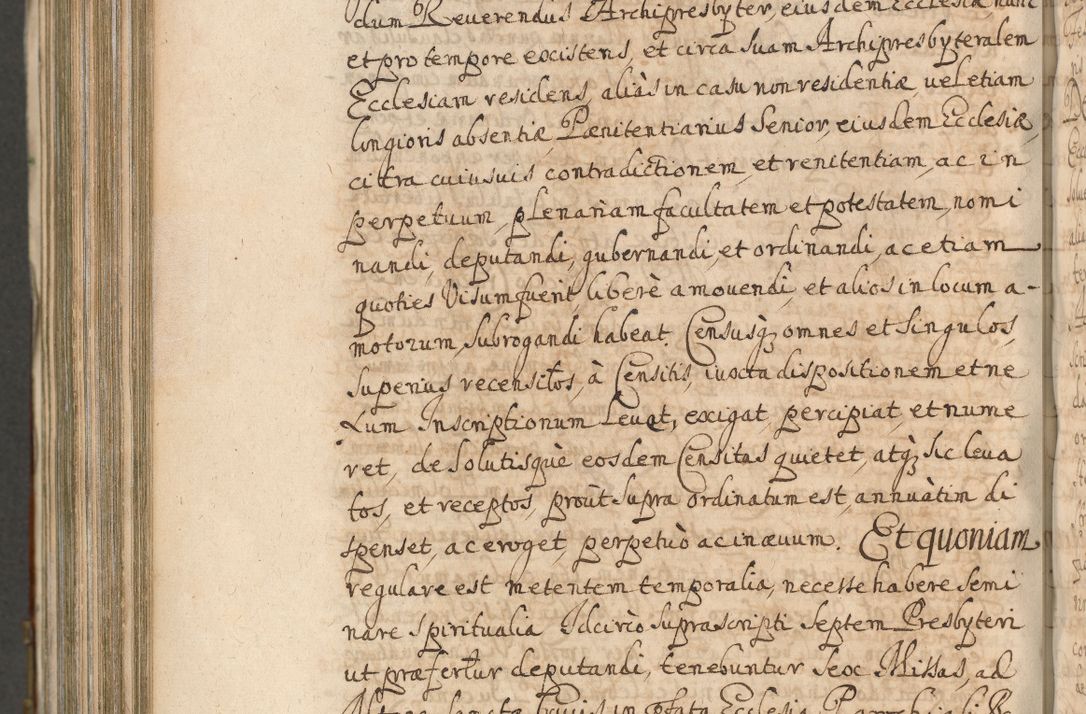 dum Reuerendus Archipresbyter, eiusdem Ecclesiæ nunc
et pro tempore existens, et circa suam Archipresbyteralem
Ecclesiam residens, aliàs in casu non residentiæ, uel etiam
longioris absentiæ, Pænitentiarius Senior, eiusdem Ecclesiæ,
citra cuiusuis contradictionem, et renitentiam, ac in
perpetuum, plenariam facultatem et potestatem, nomi
nandi, deputandi, gubernandi, et ordinandi, ac etiam
quoties Visum fuerit, liberè amouendi, et alios in locum a-
motorum, subrogandi habeat. Censusq; omnes et singulos,
superius recensitos, à Censitis, iuxta dispositionem et te
Lum Inscriptionum Leuet, exigat, percipiat, et nume
ret, de solutisquè eosdem Censitas quietet, atq; sic leua
tos, et receptos, proùt supra ordinatum est, annuàtim di
spenset, ac eroget, perpetuò ac in æuum. Et quoniam
regulare est metentem temporalia, necesse habere semi
nare spiritualia Idcircò suprascripti septem Presbyteri
ut præfertur deputandi, tenebuntur sex Missas, ad
in Ecclesia